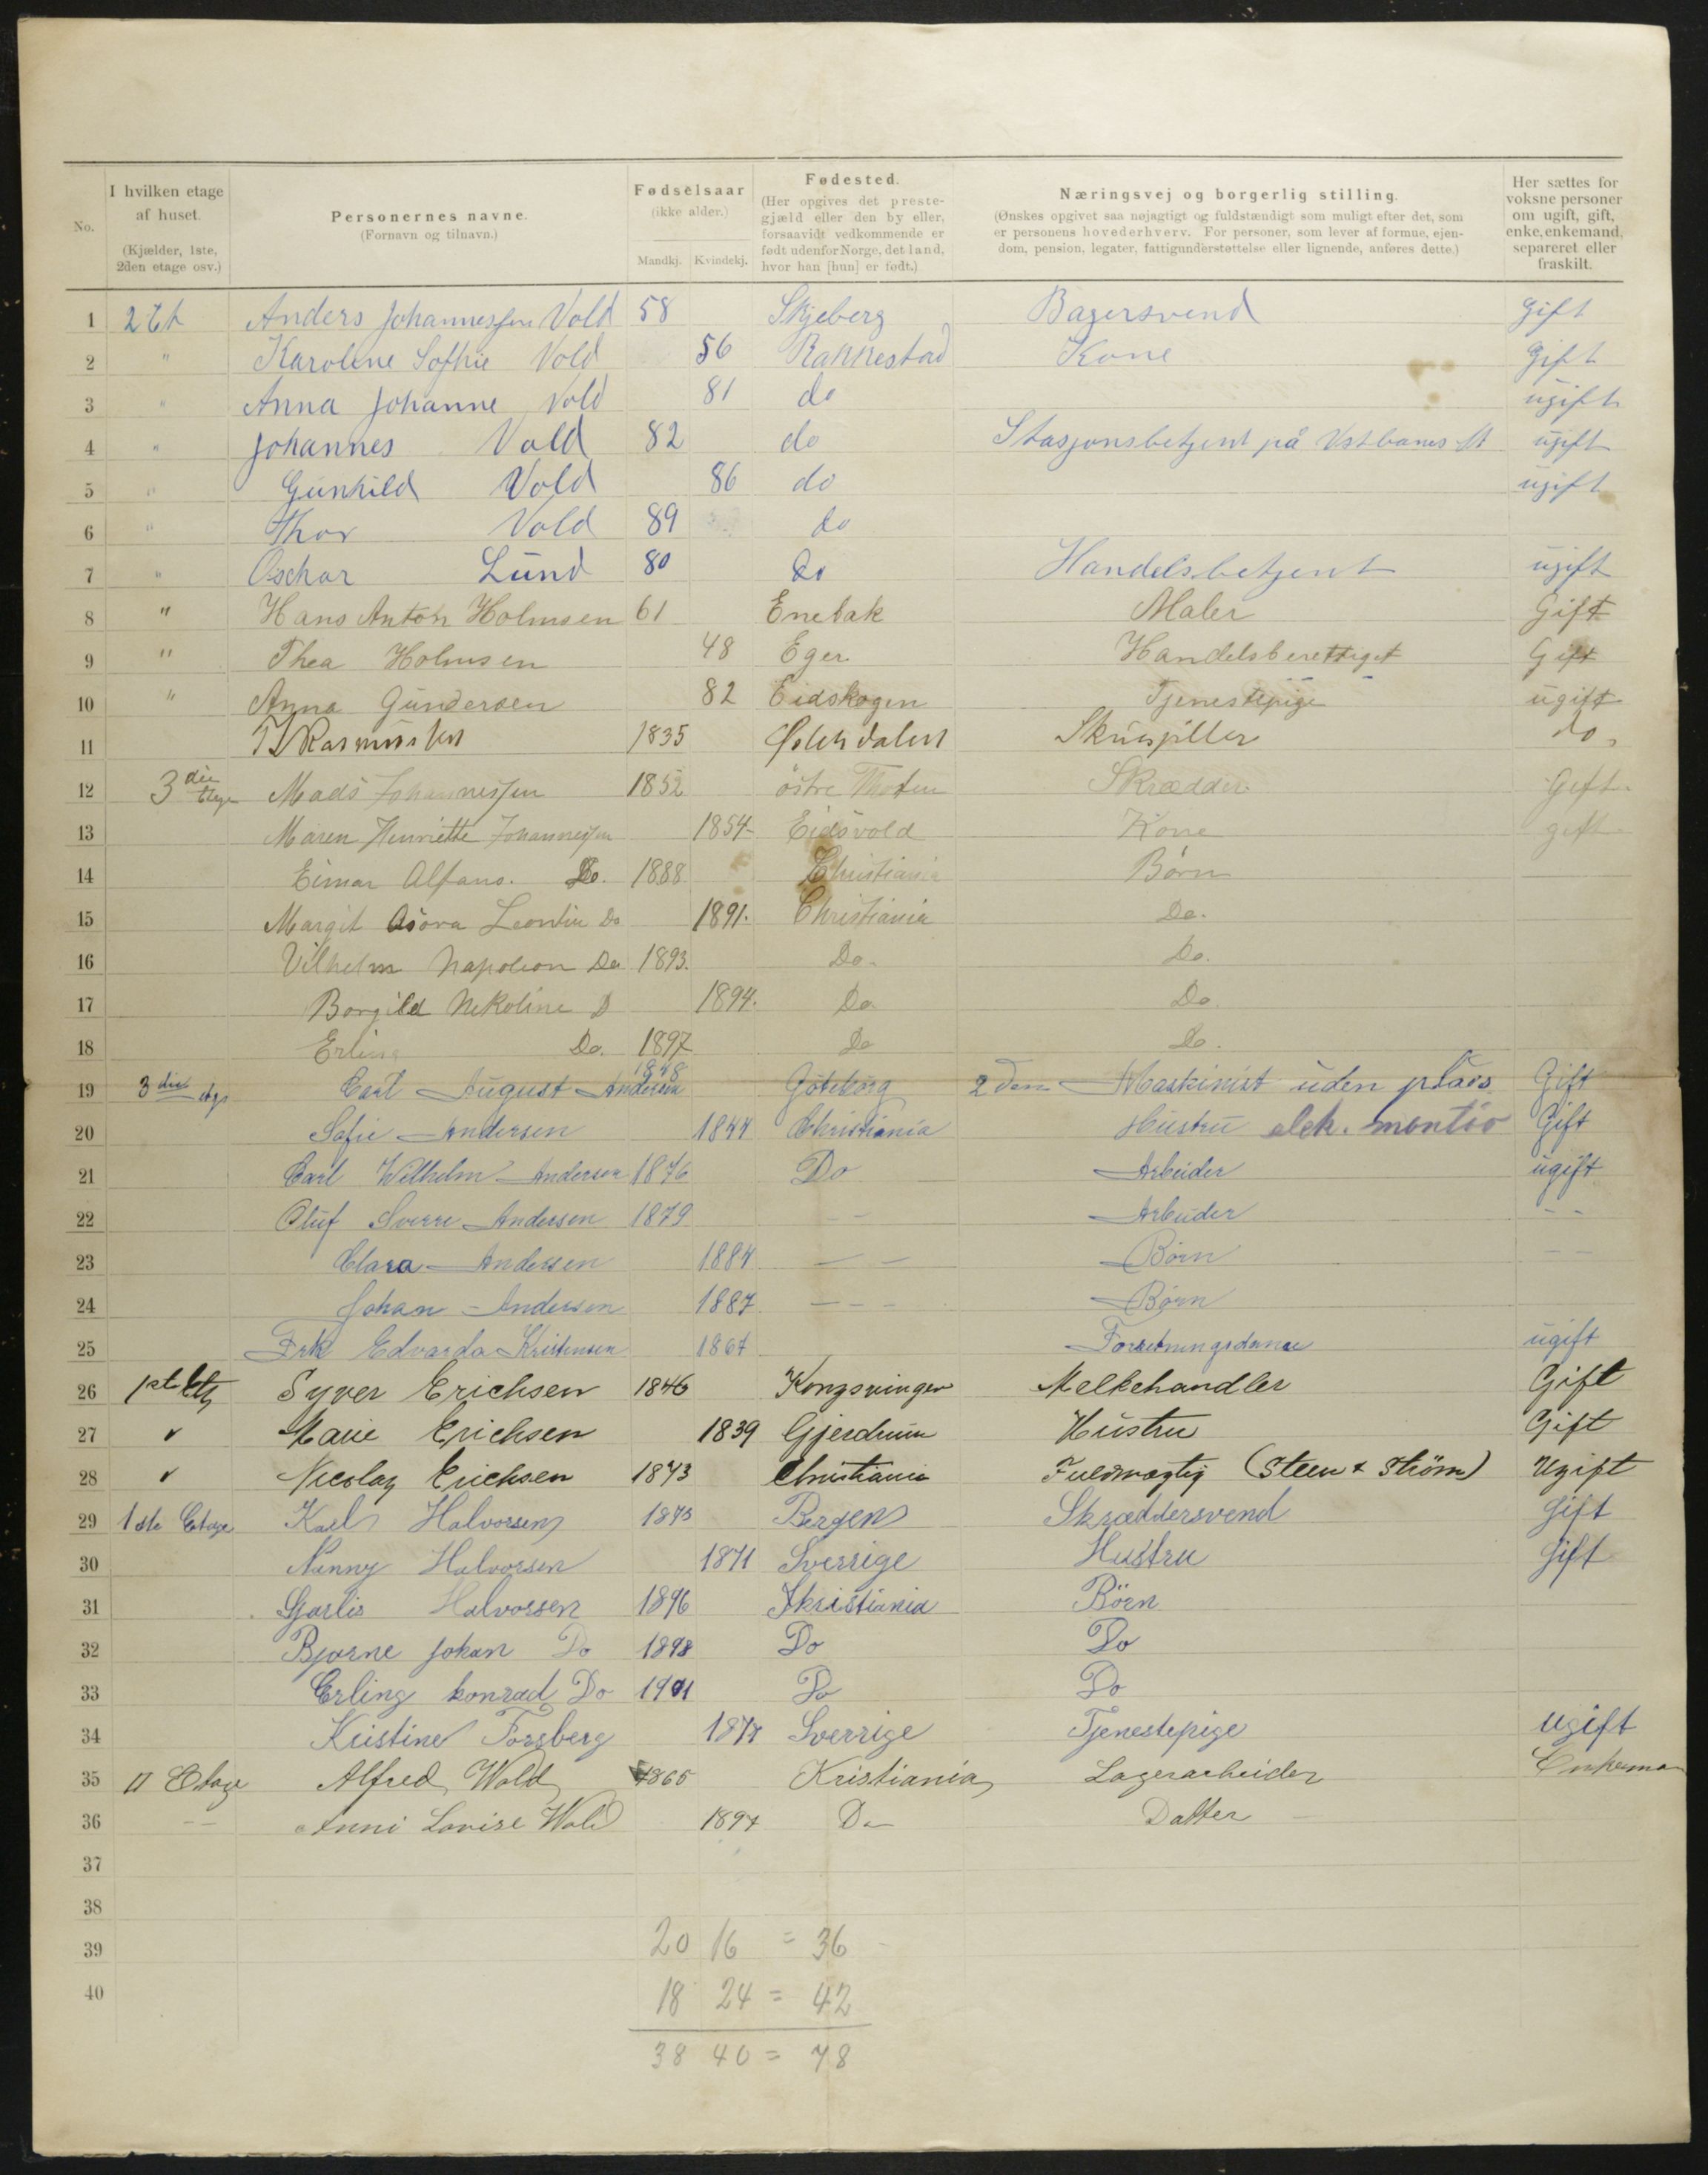 No.
I hvilken etage af huset.
(Kjælder, 1ste, 2den etage osv.)
Personernes navne.
(Fornavn og tilnavn.)
Fødselsaar
(ikke alder.)
Mandkj. Kvindekj.
Fødested.
(Her opgives det preste-
gjæld eller den by eller,
forsaavidt vedkommende er
født udenfor Norge, det land,
hvor han [hun] er født.)
Næringsvej og borgerlig stilling.
(Ønskes opgivet saa nøjagtigt og fuldstændigt som muligt efter det, som
er personens hovederhverv. For personer, som lever af formue, ejen-
dom, pension, legater, fattigunderstøttelse eller lignende, anføres dette.)
Her sættes for
voksne personer
om ugift, gift,
enke, enkemand,
separeret eller
fraskilt.
1 2 Et Anders Johannessen Vold 58 Skjeberg Bagersvend gift
2 " Karoline Sofhie Vold 56 Rakkestad Kone gift
3 " Anna Johanne Vold 81 do ugift
4 " Johannes Vold 82 do Stasjonsbetjent på Vstbanes St ugift
5 " Gunhild Vold 86 do ugift
6 " Thor Vold 89 do
7 " Oschar Lund 80 do Handelsbetjent ugift
8 " Hans Anton Holmsen 61 Enebak Maler Gift
9 " Thea Holmsen 48 Eger Handelsberettiget Gift
10 " Anna Gundersen 82 Eidskogen Tjenestepige ugift
11 1835 Skuespiller do,
12 3die Etage Mads Johannessen 1852 östre Thoten Skrædder Gift
13 Maren Henriette Johannessen 1854 Eidsvold Kone gift
14 Eimar Alfans. Do. 1888 Christiania Børn
15 Margit Leontine Do 1891. Christiania Do.
16 Vilhelm Napoleon Do 1893. Do. Do.
17 Borgild Nekoline D 1894. Do Do.
18 Erling Do. 1897 Do Do.
19 3die etge Carl August Andersen 1848 Göteborg 2den Maskinist uden plads Gift
20 Sofie Andersen 1844 Christiania Hustru elek. montör Gift
21 Carl Wilhelm Andersen 1876 Do Arbeider ugift
22 Oluf Sverre Andersen 1879 – – Arbeider – –
23 Clara Andersen 1884 – – Børn – –
24 Johan Andersen 1887 – – – Børn
25 Frk Edvarda Kristensen 1867 Forretningsdame ugift
26 1ste Etg Syver Erichsen 1846 Kongsvinger Melkehandler Gift
27 " Marie Erichsen 1839 Gjerdrum Hustru Gift
28 " Nicolay Erichsen 1873 Christiania Fuldmægtig (Steen & Strøm) Ugift
29 1ste Etage Karl Halvorsen 1873 Bergen Skræddersvend Gift
30 Nanny Halvorsen 1871 Sverrige Hustru Gift
31 Halvorsen 1896 Kristiania Börn
32 Bjarne Johan Do 1898 Do Do
33 Erling konrad Do 1901 Do Do
34 Kristine Forsberg 1877 Sverrige Tjenestepige ugift
35 II Etage Alfred Wold 1865 Kristiania Lagerarbeider Enkeman
36 – – Anni Lovise Wold 1894 Do Datter
37
38
39 20 16 = 36
40 18 24 = 42
38 40 = 78